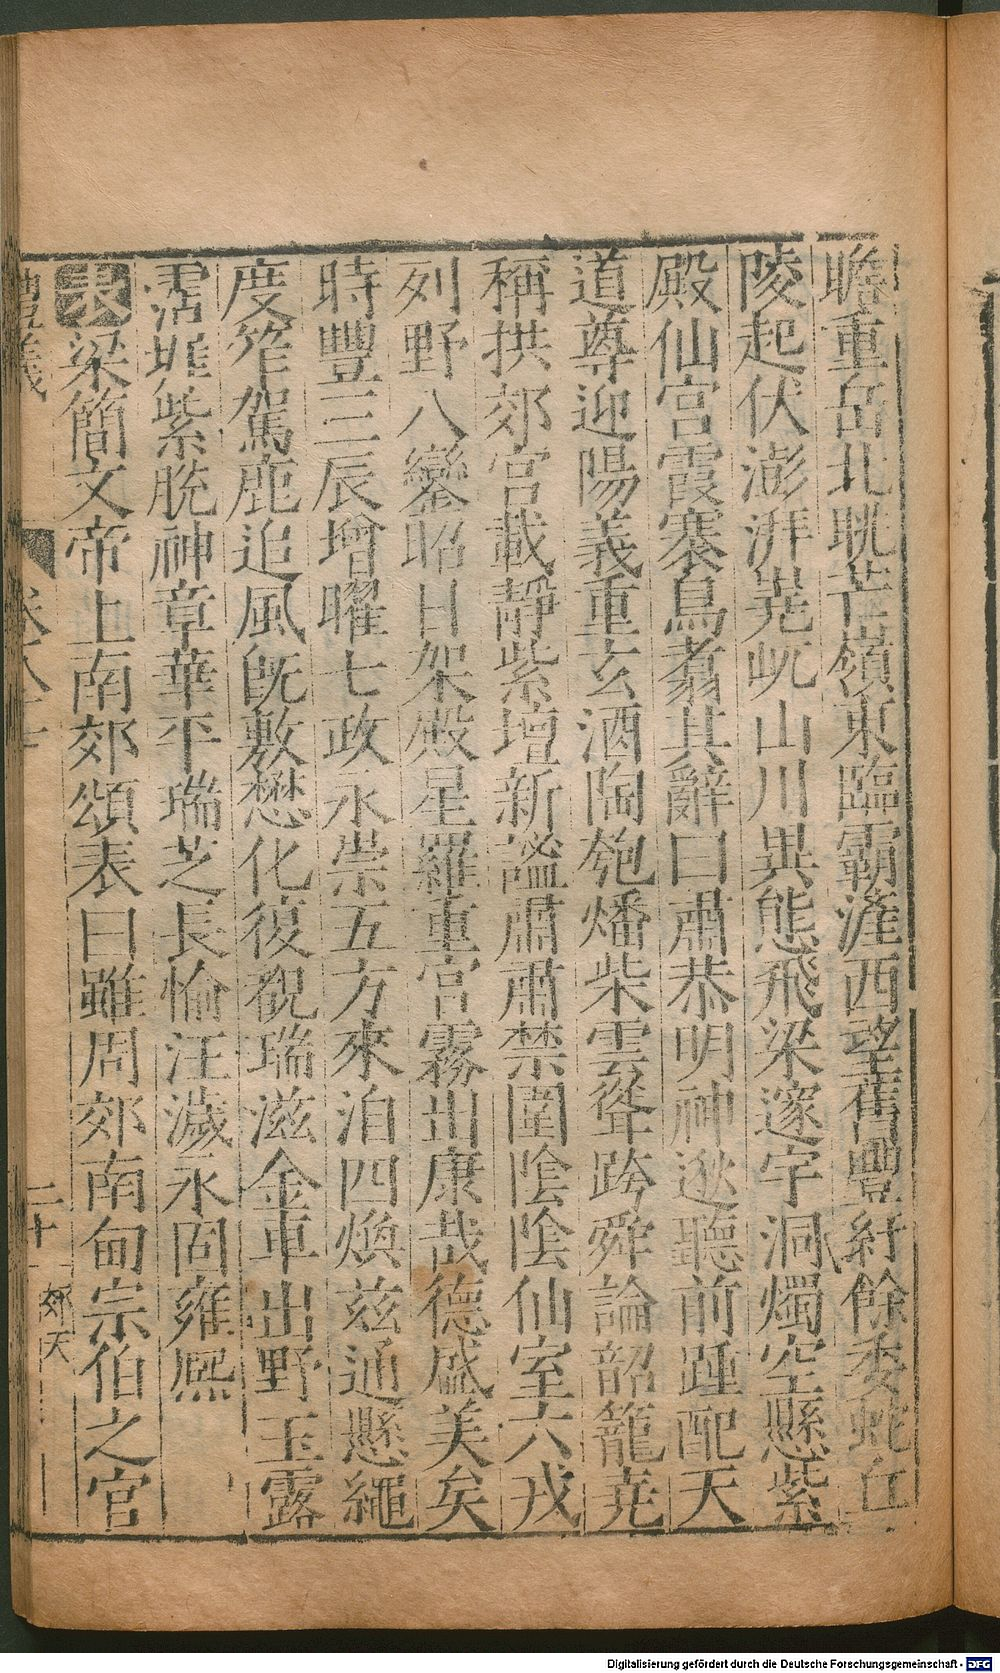 瞻重岳北眺芒嶺東臨霸滻西望舊豐紆餘委蛇丘
陵起伏澎湃嵬屼山川異態飛梁邃宇洞燭空懸紫
殿仙宮霞褰鳥翥其辭曰肅恭明神逖聽前踵配天
道尊迎陽義重玄酒陶匏燔柴雲聳跨舜論韶籠堯
稱拱郊宮載靜紫壇新謐肅肅禁圍陰陰仙室六戎
列野八鑾昭日架殿星羅重宮霧出康哉德盛美矣
時豐三辰增曜七政永崇五方來洎四煥茲通懸繩
度笮駕鹿追風旣敷懋化復覩瑞滋金車出野玉露
霑堦紫脫神章華平瑞芝長愉汪濊永固雍熙
表梁簡文帝上南郊頌表曰雖周郊南甸宗伯之官
禮儀 卷 二十 郊天
Digitalisierung gefördert durch die Deutsche Forschungsgemeinschaft - DFG